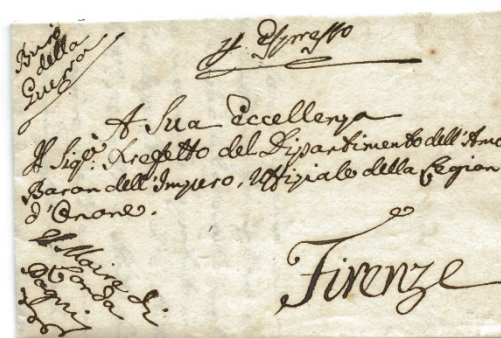 Buró
della
Guerra
P. Espresso
A Sua Eccellenza
Il Sigre. Prefetto del Dipartimento dell'Arno
Baron dell'Impero, Uffiziale della Legion
d'Onore.
Il Maire di
Londa
Firenze